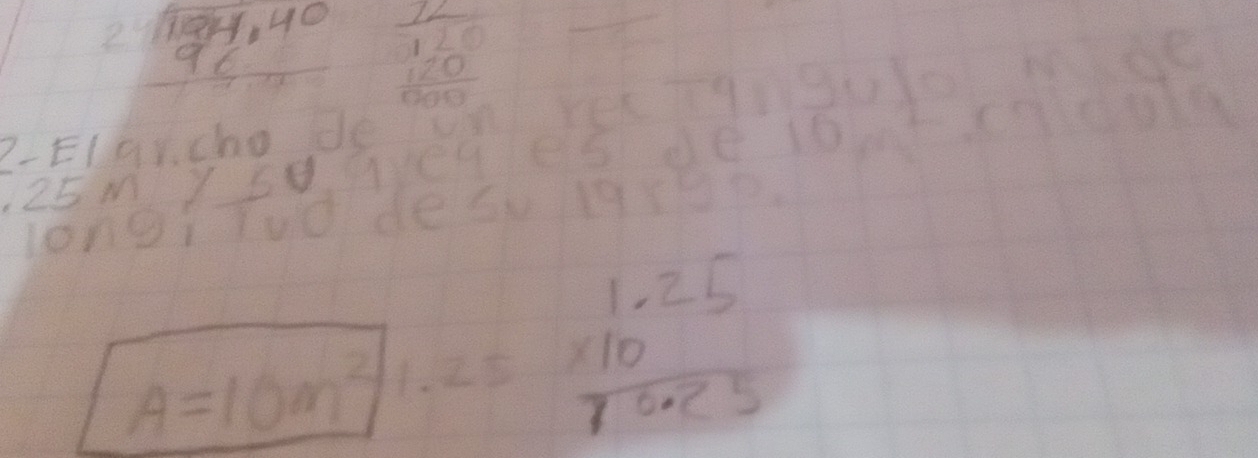 24 184,40 12
96 120
120
000
2-El ancho de un rectangulo mide
.25 m y su area es de 10 m² calcula
longitud de su largo.
1.25
A=10m² 1.25 x10
10.25